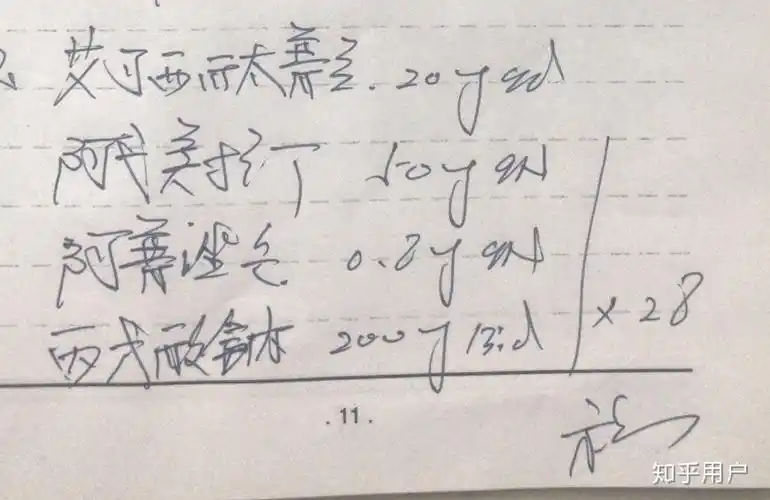 艾司西酞普兰. 20mg qd
阿戈美拉汀 50mg qN
阿普唑仑 0.8mg qN
丙戊酸 200mg Bid
×28
.11.
知乎用户